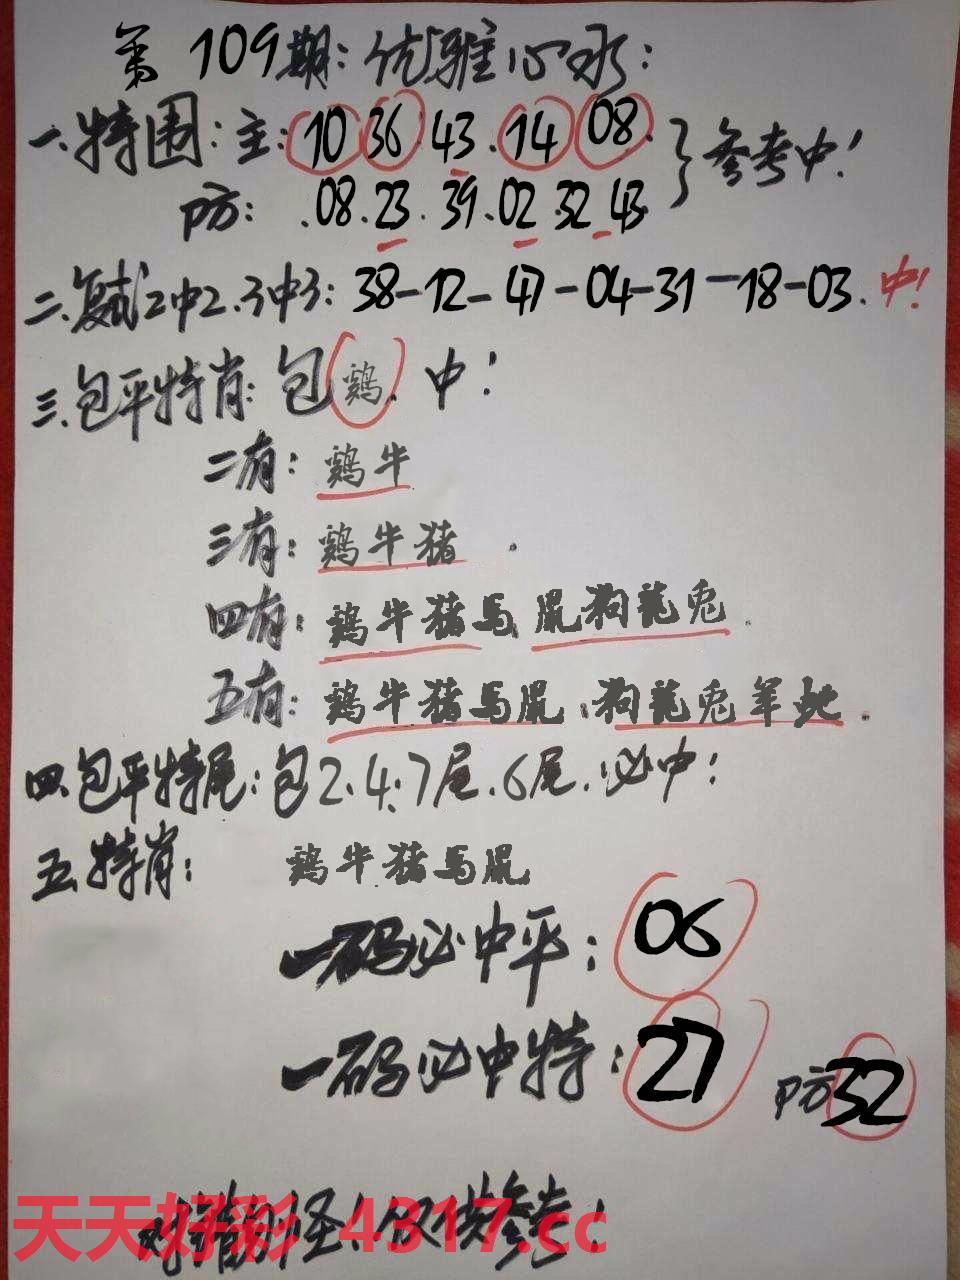 第109期：优雅心水：
一.特围：主：10 36 43.14 08. 参考中！
防：.08.23.39.02.32.43
二.复试2中2.3中3：38-12-47-04-31-18-03.中！
三.包平特肖：包鸡.中！
二有：鸡牛
三有：鸡牛猪.
四有：鸡牛猪马鼠狗龍兔.
五有：鸡牛猪马鼠狗龍兔羊蛇.
四.包平特尾：包2.4.7尾.6尾.必中！
五.特肖：鸡牛猪马鼠
一码必中平：06
一码必中特：27 防32
对错勿怪！仅供参考！
天天好彩 4317.cc